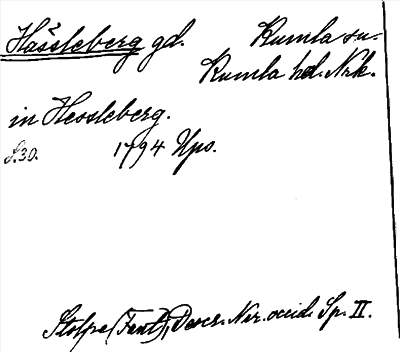 Hässleberg gd. Kumla sn.
Kumla hd. Nrk.
in Hessleberg.
S.30. 1794 Ups.
Stolpe (Fant), Descr. Ner. occid. Sp. II.